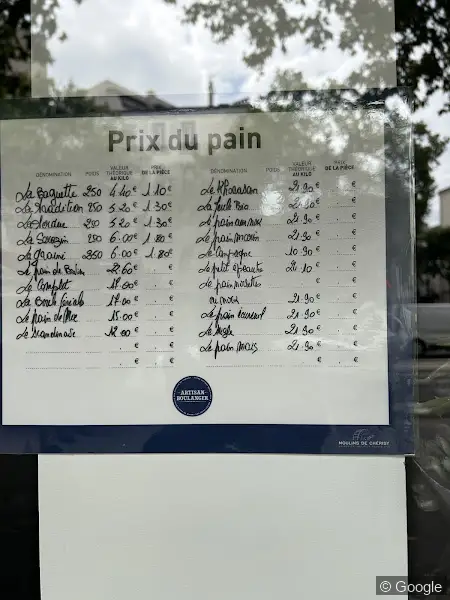 Prix du pain
DÉNOMINATION POIDS VALEUR THÉORIQUE AU KILO PRIX DE LA PIÈCE
La Baguette 250 4.40€ 1.10€
La Tradition 250 5.20€ 1.30€
250 5.20€ 1.30€
Le Sarrazin 250 6.00€ 1.80€
La graine 350 6.00€ 1.80€
Le pain du 22.60€ €
Le Complet €
La Boule 17.00€ €
Le pain de Mie 15.00€ €
Le 12.00€ €
€ €
€ €
DÉNOMINATION POIDS VALEUR THÉORIQUE AU KILO PRIX DE LA PIÈCE
Le Khorasan 21.90€ €
€ €
Le pain aux noix 21.90€ €
Le pain 21.90€ €
La Campagne 10.90€ €
Le petit épeautre 21.10€ €
Le pain noisettes € €
ou noix 21.90€ €
Le pain 21.90€ €
Le Seigle 21.90€ €
Le pain Maïs 21.90€ €
€ €
ARTISAN BOULANGER
MOULINS DE CHÉRISY
© Google